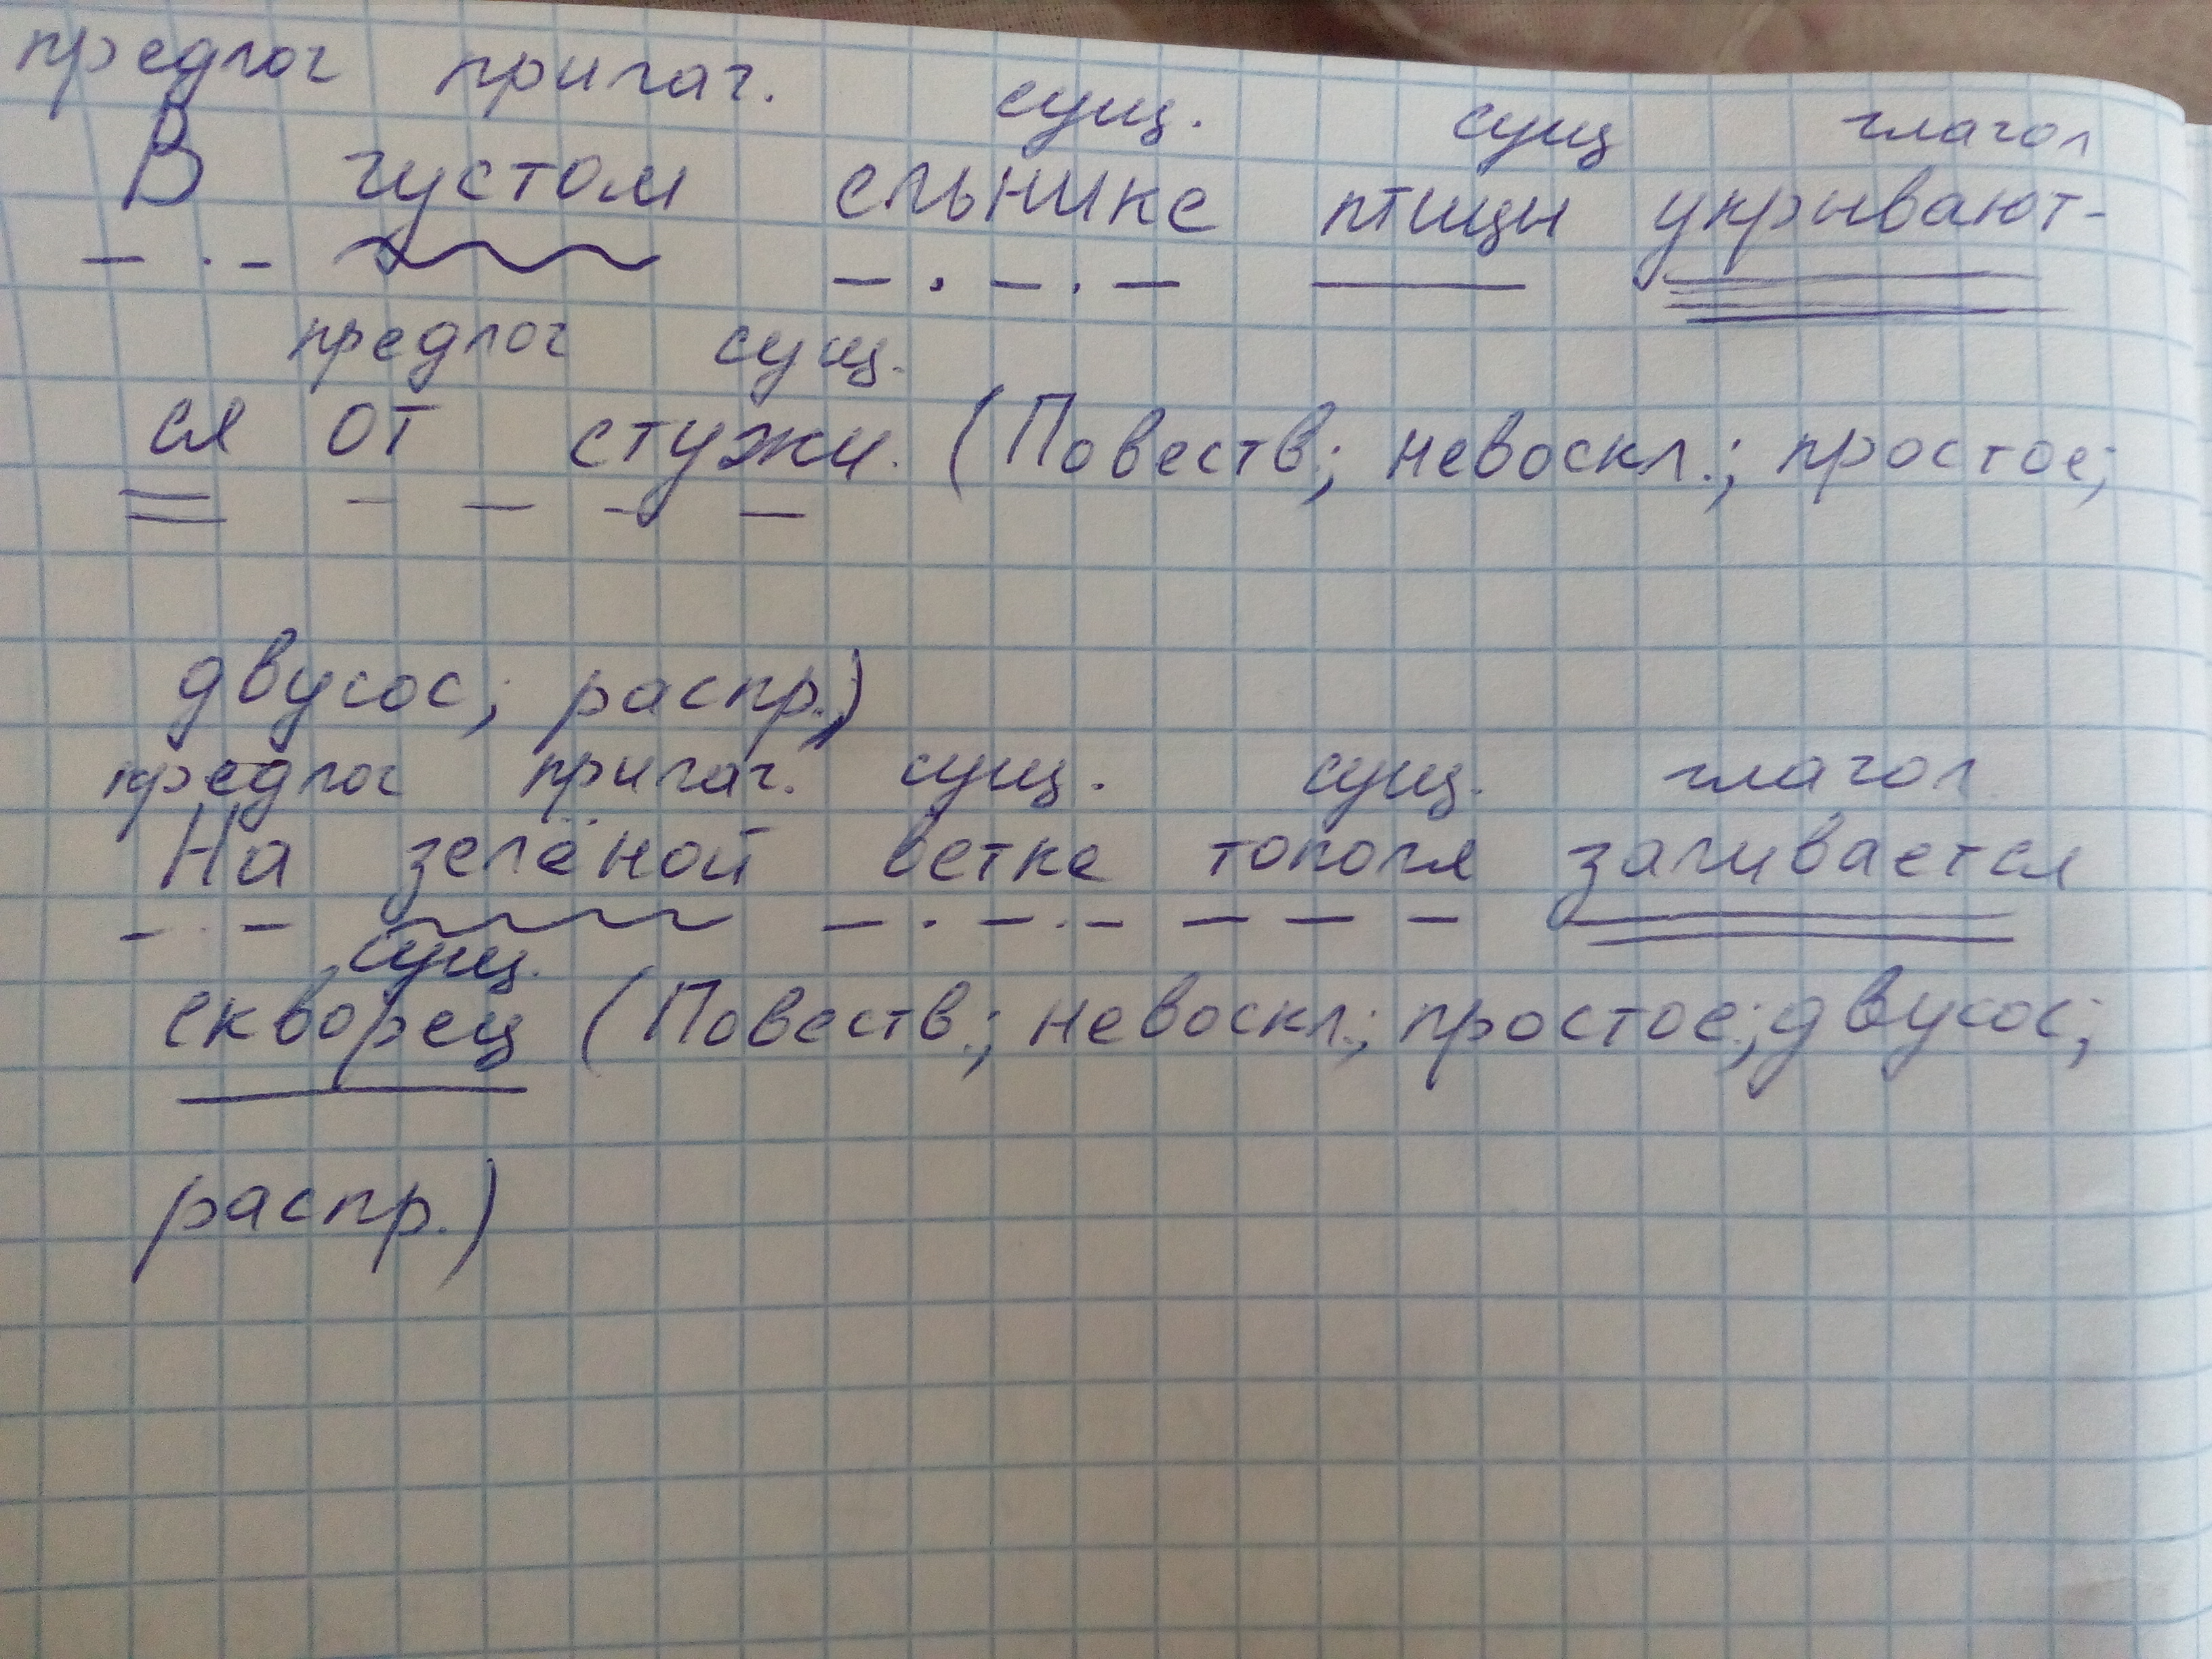 предлог прилаг. сущ. сущ глагол
В густом ельнике птицы укрывают-
предлог сущ.
ся от стужи. (Повеств.; невоскл.; простое;
двусос; распр.)
предлог прилаг. сущ. сущ. глагол
На зелёной ветке тополя заливается
сущ.
скворец (Повеств.; невоскл.; простое; двусос;
распр.)